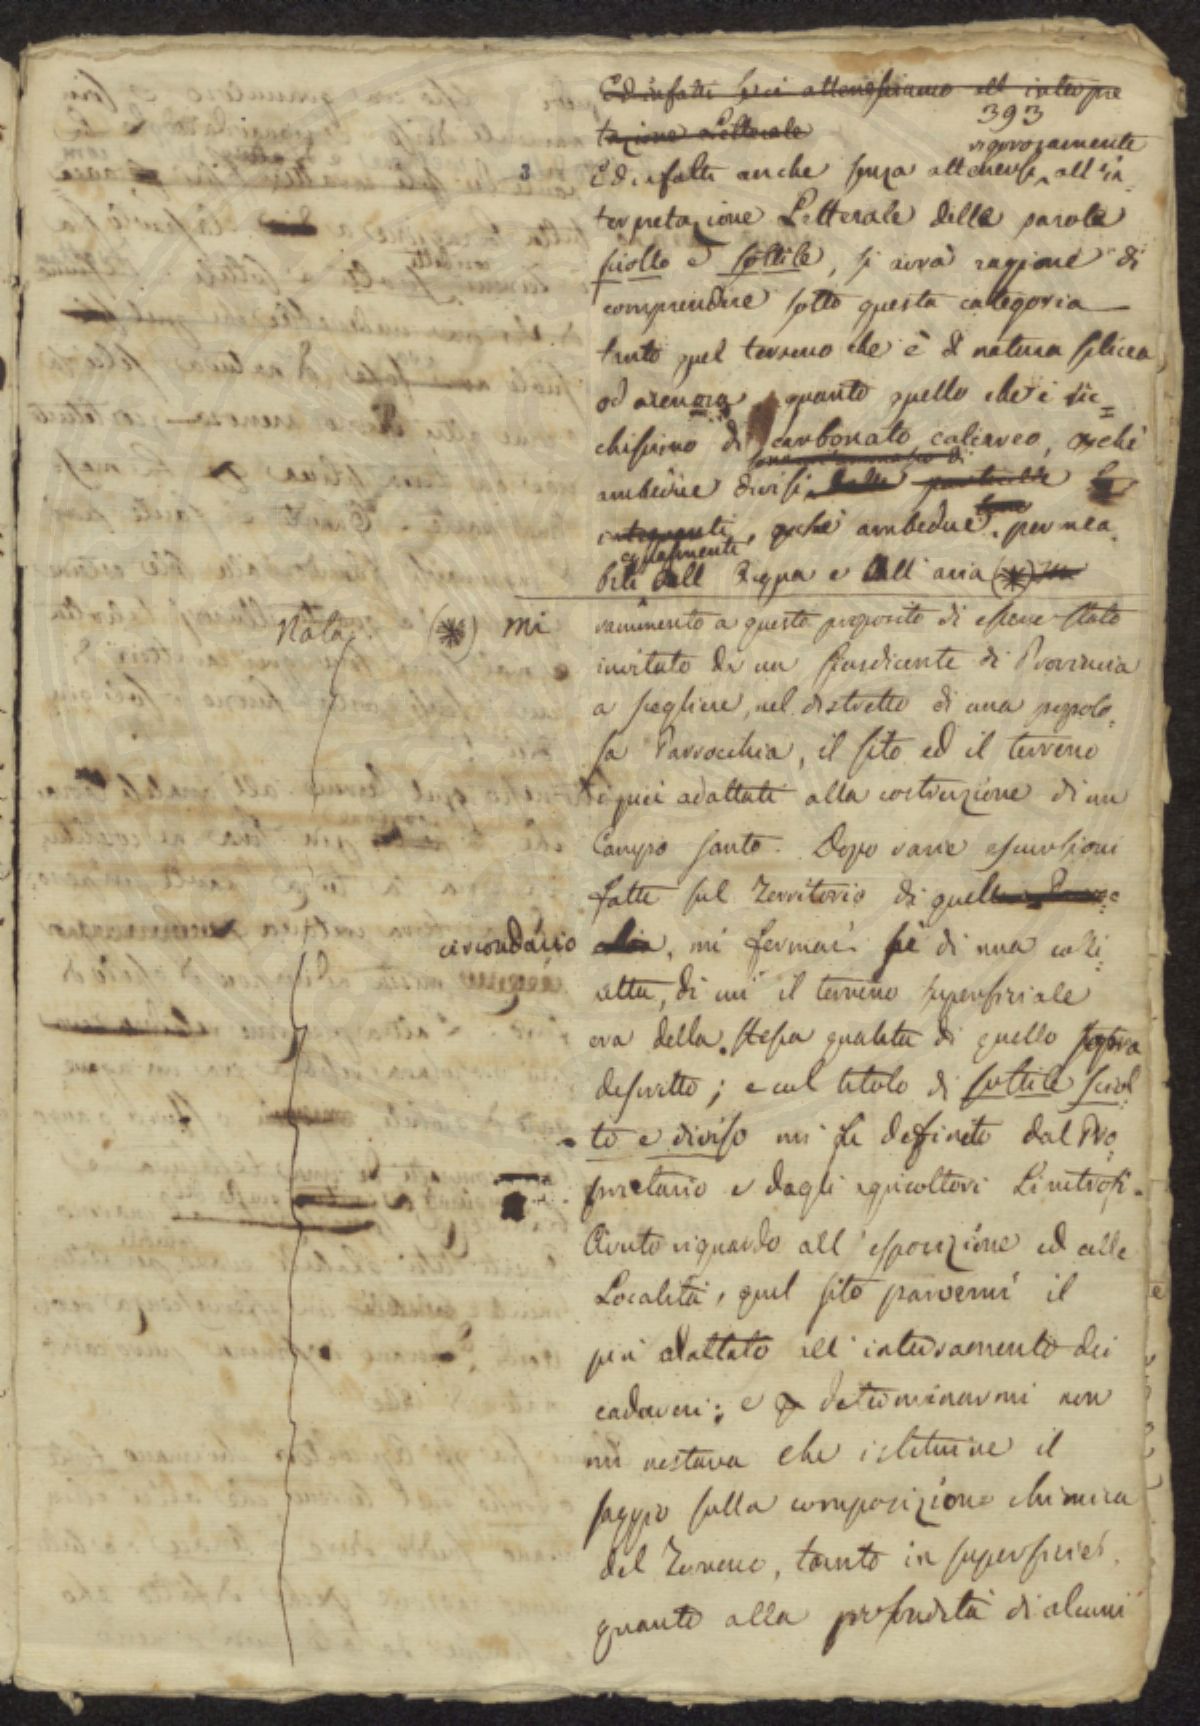 Ed infatti se ci attenessimo all interpre
393
tazione Letterale
rigorosamente
3 Ed infatti anche senza attenersi all'in-
terpretazione Letterale delle parole
sciolto e sottile, si avrà ragione di
comprendere sotto questa categoria
tanto quel terreno che è di natura silicea
od arenosa quanto quello che è ric=
chissimo di carbonato calcareo, perchè
ambedue divisi dalle particelle
integranti, perchè ambedue permea-
egualmente
bili dall Acqua e dall' aria (*)
Nota (*) Mi rammento a questo proposito di essere stato
invitato da un Giusdicente di Provincia
a scegliere, nel distretto di una popolo=
sa Parrocchia, il sito ed il terreno
i più adattati alla costruzione di un
Campo santo. Dopo varie escursioni
fatte sul Territorio di quella Parroc=
circondario chia, mi fermai su di una colli=
netta, di cui il terreno superficiale
era della stessa qualità di quello sopra
descritto; e col titolo di sottile sciol=
to e diviso mi fu definito dal Pro=
prietario e dagli agricoltori Limitrofi.
Avuto riguardo all' esposizione ed alle
Località, quel sito parvemi il
più adattato all' interramento dei
cadaveri; e a determinarmi non
mi restava che istituire il
saggio sulla composizione chimica
del Terreno, tanto in superficie,
quanto alla profondità di alcuni